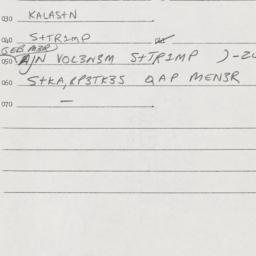 030 KALAS+N
040 S+TR1MP
GEB M3R
050 AJN VOL3N3M S+TR1MP )-
060 S+KA,RP3TK3S QAP MEN3R
070 —